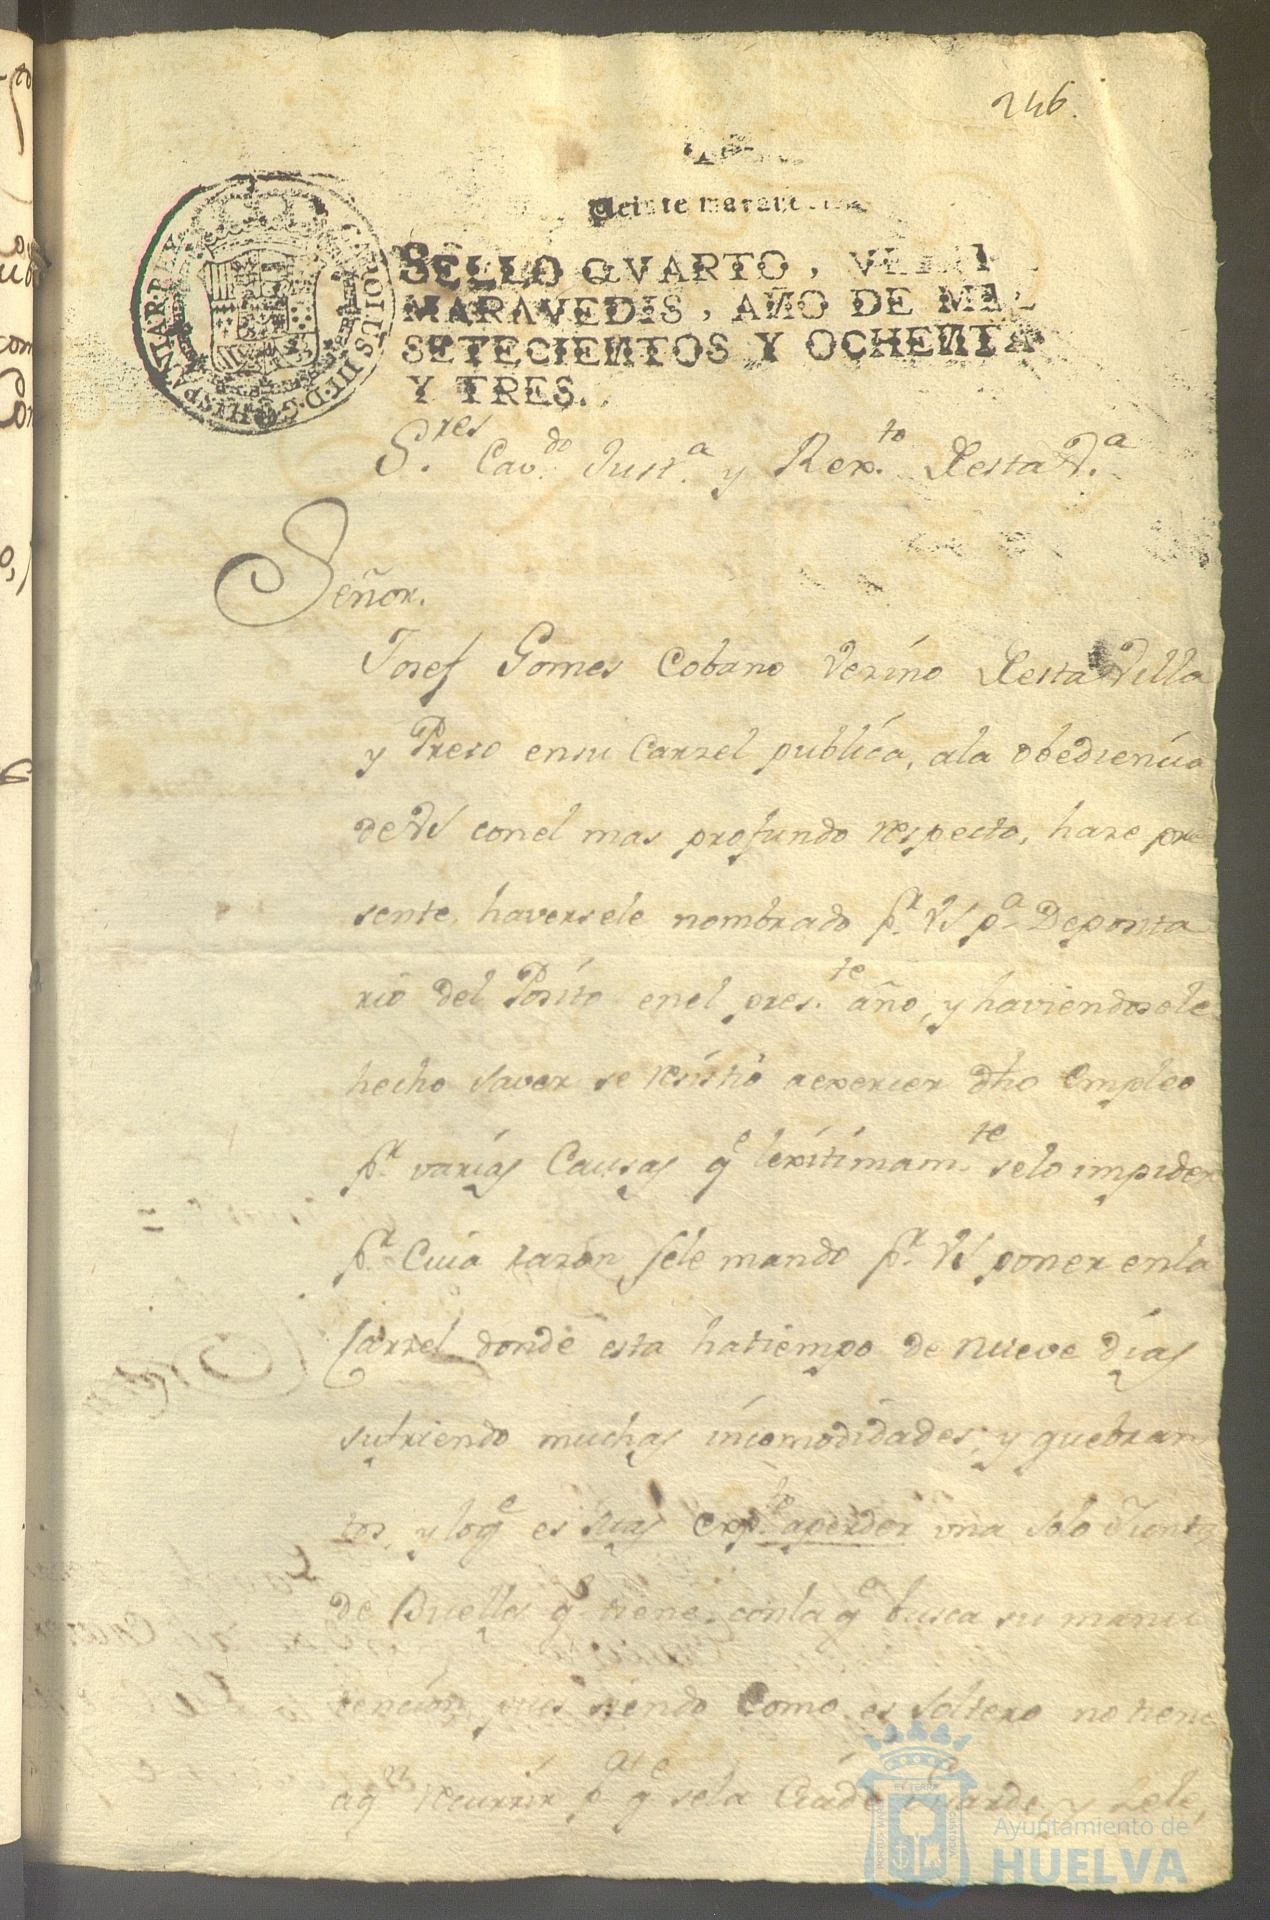 246.
Veinte maravedis
SELLO QVARTO, VEINTE
MARAVEDIS, AÑO DE MIL
SETECIENTOS Y OCHENTA
Y TRES.
S.res Cav.do Just.a y Rex.to Desta V.a
Señor.
Josef Gomes Cobano Vezino Desta Villa
y Preso ensu Carzel publica, ala obediencia
de VS conel mas profundo respecto, haze pre
sente, haversele nombrado p.r VS p.a Deposita
rio del Posito enel pres.te año, y haviendosele
hecho saver se resistio aexercer dho Empleo
p.r varias Causas q.e lexitimam.te selo impiden
p.r Cuia razon sele mando p.r VS poner enla
Carzel donde esta hatiempo de nueve dias
sufriendo muchas incomodidades, y quebran
tos, y loq.e es mas exp.to aperder una sola Junta
de Buelles q.e tiene, conla q.e busca su manu
tencion, pues siendo Como es soltero no tiene
aq.n recurrir p.a q.e sela Cuide Guarde, y Zele,
Ayuntamiento de
HUELVA